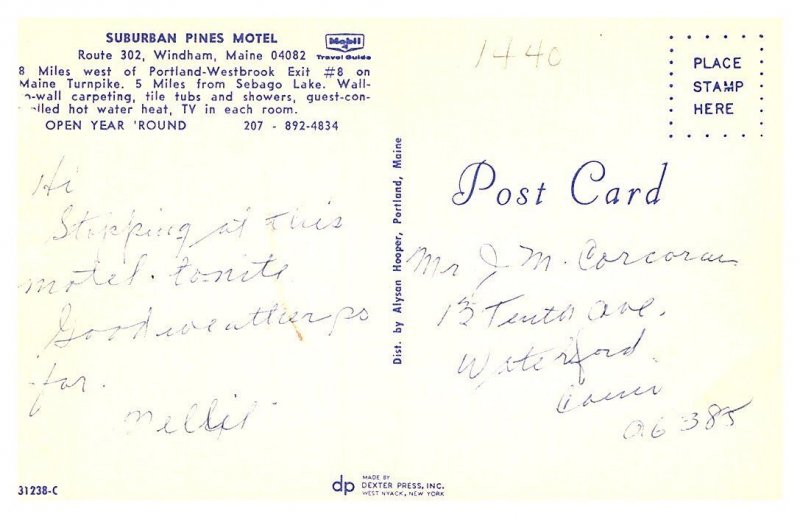 SUBURBAN PINES MOTEL
Route 302, Windham, Maine 04082
Mobil
Travel Guide
8 Miles west of Portland-Westbrook Exit #8 on
Maine Turnpike. 5 Miles from Sebago Lake. Wall-
o-wall carpeting, tile tubs and showers, guest-con-
lled hot water heat, TV in each room.
OPEN YEAR 'ROUND 207 - 892-4834
Hi
Stopping at this
motel. tonite
Good weather so
far.
Nellie
31238-C
Dist. by Alyson Hooper, Portland, Maine
dp
MADE BY
DEXTER PRESS, INC.
WEST NYACK, NEW YORK
1440
PLACE
STAMP
HERE
Post Card
Mr J. M. Corcoran
13 Tenth Ave.
Waterford
Conn
06385